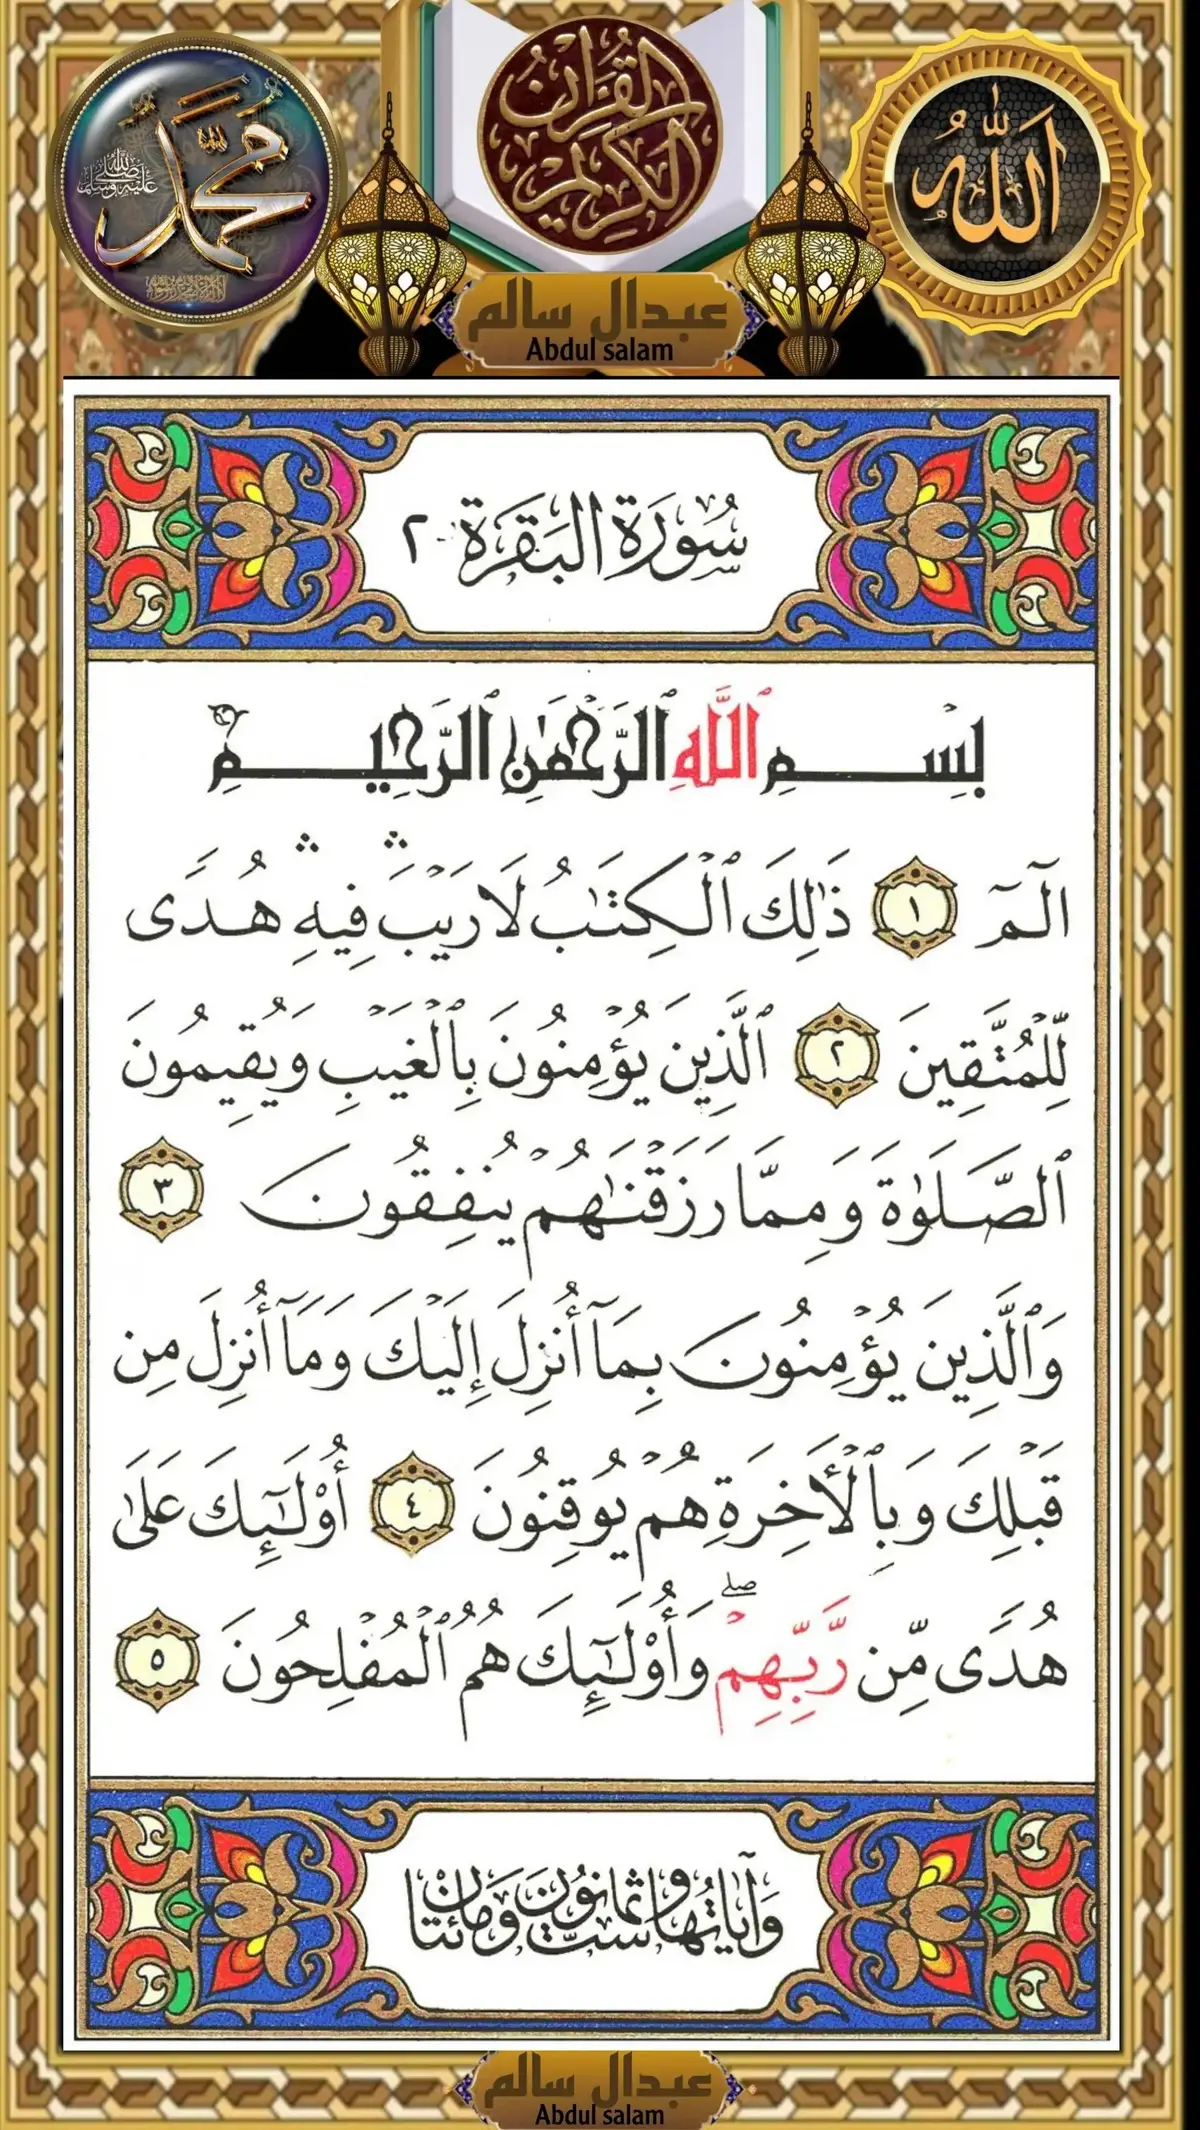 محمد
صلى الله عليه وسلم
القرآن الكريم
الله
عبدال سالم
Abdul salam
سُورَةُ البَقَرَةِ ٢
بِسْمِ ٱللَّهِ ٱلرَّحْمَٰنِ ٱلرَّحِيمِ
الٓمٓ ١ ذَٰلِكَ ٱلْكِتَٰبُ لَا رَيْبَ ۛ فِيهِ ۛ هُدًى
لِّلْمُتَّقِينَ ٢ ٱلَّذِينَ يُؤْمِنُونَ بِٱلْغَيْبِ وَيُقِيمُونَ
ٱلصَّلَوٰةَ وَمِمَّا رَزَقْنَٰهُمْ يُنفِقُونَ ٣
وَٱلَّذِينَ يُؤْمِنُونَ بِمَآ أُنزِلَ إِلَيْكَ وَمَآ أُنزِلَ مِن
قَبْلِكَ وَبِٱلْءَاخِرَةِ هُمْ يُوقِنُونَ ٤ أُو۟لَٰٓئِكَ عَلَىٰ
هُدًى مِّن رَّبِّهِمْ ۖ وَأُو۟لَٰٓئِكَ هُمُ ٱلْمُفْلِحُونَ ٥
وَآيَاتُهَا سِتٌّ وَثَمَانُونَ وَمِائَتَانِ
عبدال سالم
Abdul salam